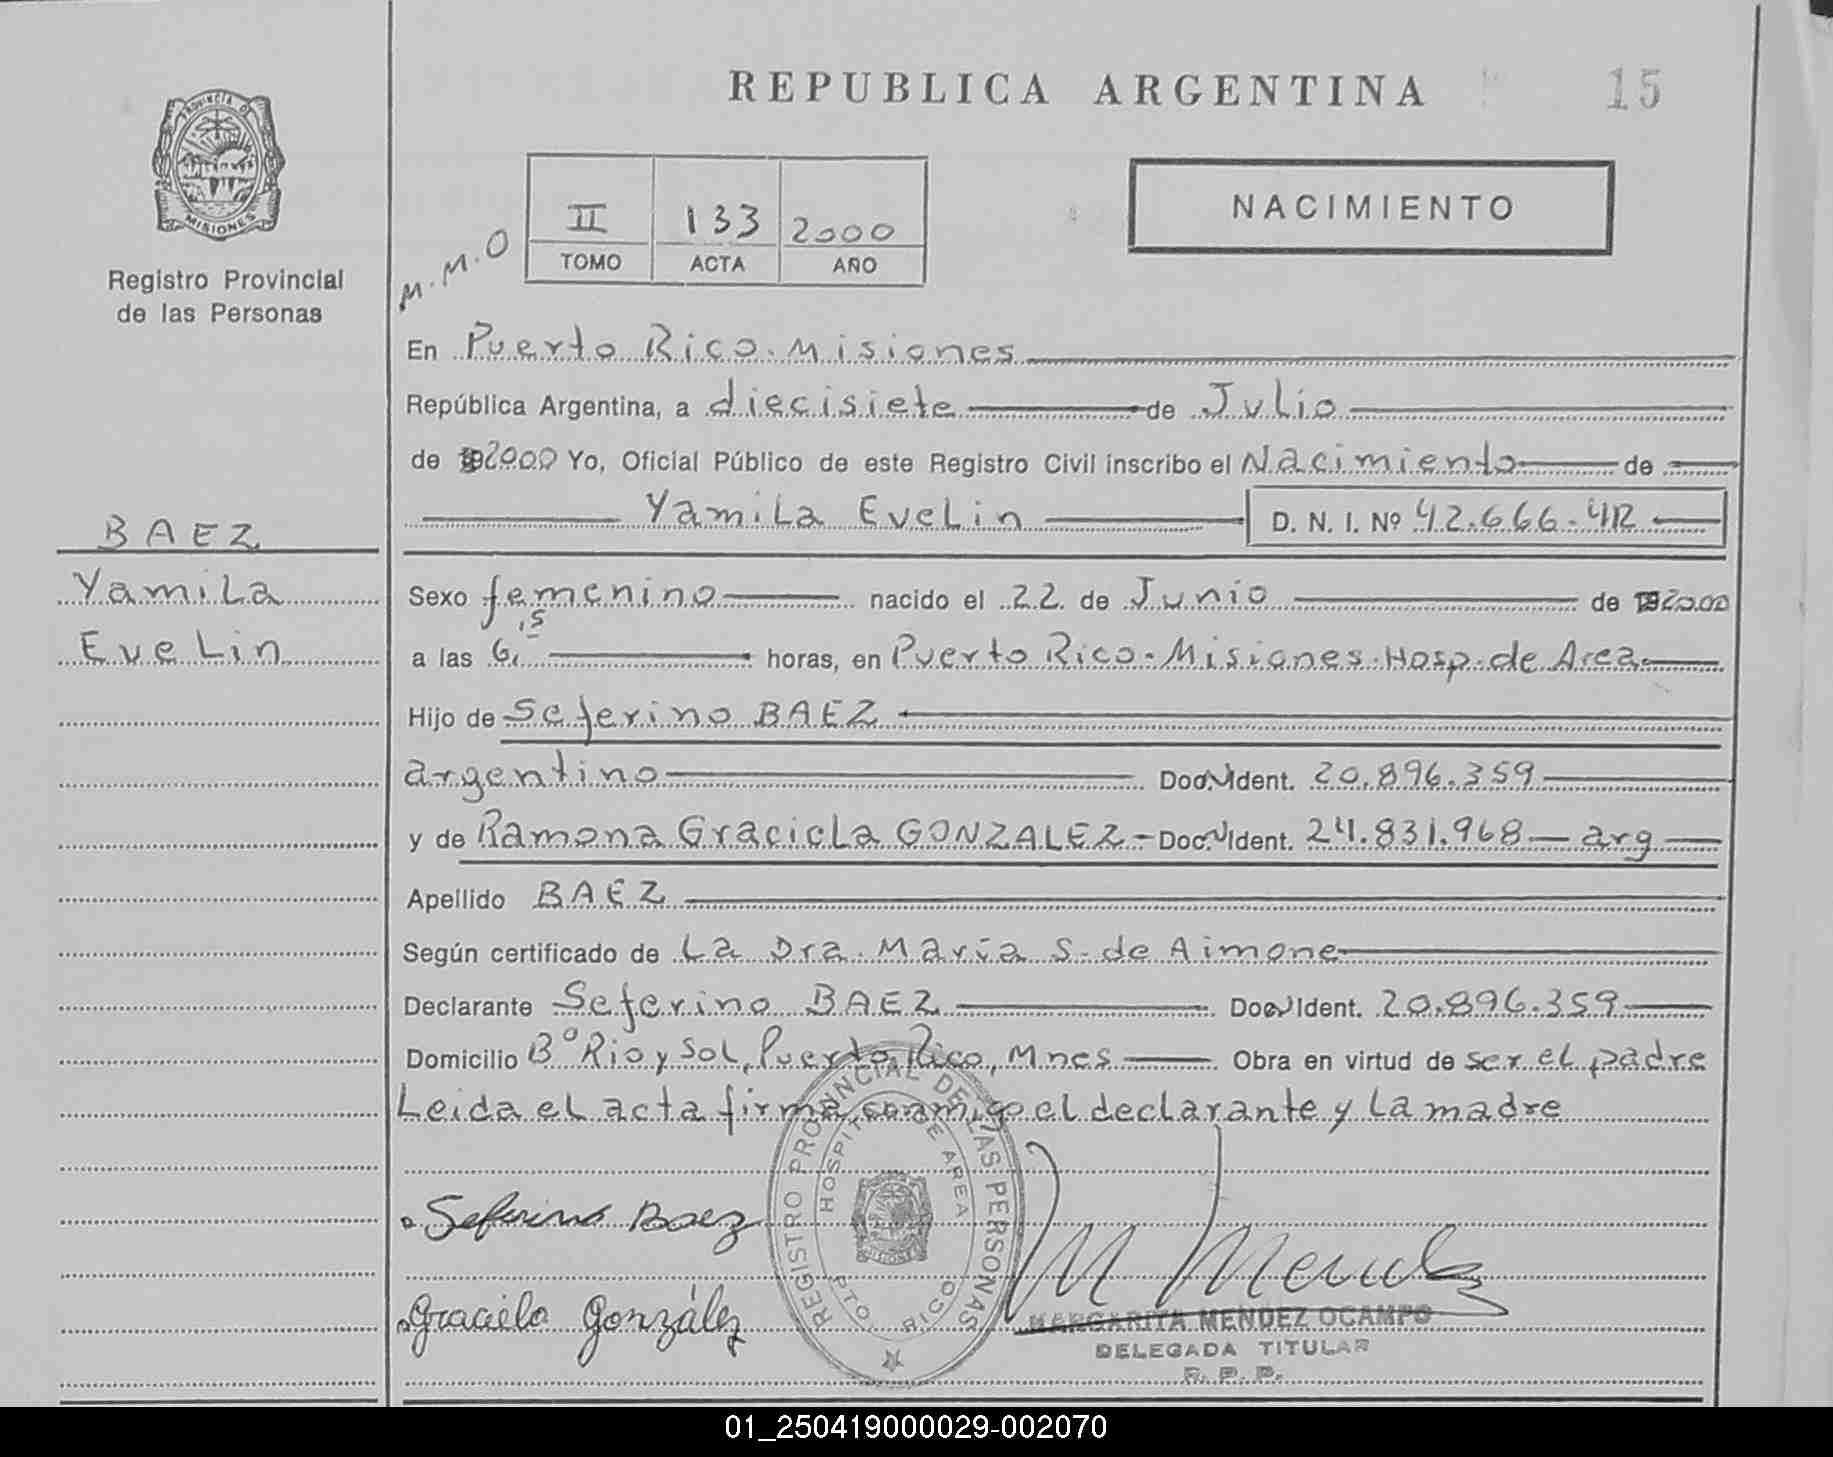 REPUBLICA ARGENTINA 15
PROVINCIA DE
MISIONES
Registro Provincial
de las Personas
NACIMIENTO
II 133 2000
TOMO ACTA AÑO
M.M.O
En Puerto Rico. Misiones
República Argentina, a diecisiete de Julio
de 2000 Yo, Oficial Público de este Registro Civil inscribo el Nacimiento de
Yamila Evelin D. N. I. Nº 42.666.412
BAEZ
Yamila
Evelin
Sexo femenino nacido el 22 de Junio de 2000
a las 6,15 horas, en Puerto Rico. Misiones. Hosp. de Area
Hijo de Seferino BAEZ
argentino Doc. Ident. 20.896.359
y de Ramona Graciela GONZALEZ - Doc. Ident. 24.831.968 — arg
Apellido BAEZ
Según certificado de La Dra. María S. de Aimone
Declarante Seferino BAEZ Doc. Ident. 20.896.359
Domicilio Bº Rio y Sol, Puerto Rico, Mnes Obra en virtud de ser el padre
Leida el acta firma conmigo el declarante y la madre
REGISTRO PROVINCIAL DE LAS PERSONAS
HOSPITAL DE AREA
PTO RICO
MISIONES
Seferino Baez
Graciela González
M Mendez
MARGARITA MENDEZ OCAMPO
DELEGADA TITULAR
R. P. P.
01_250419000029-002070